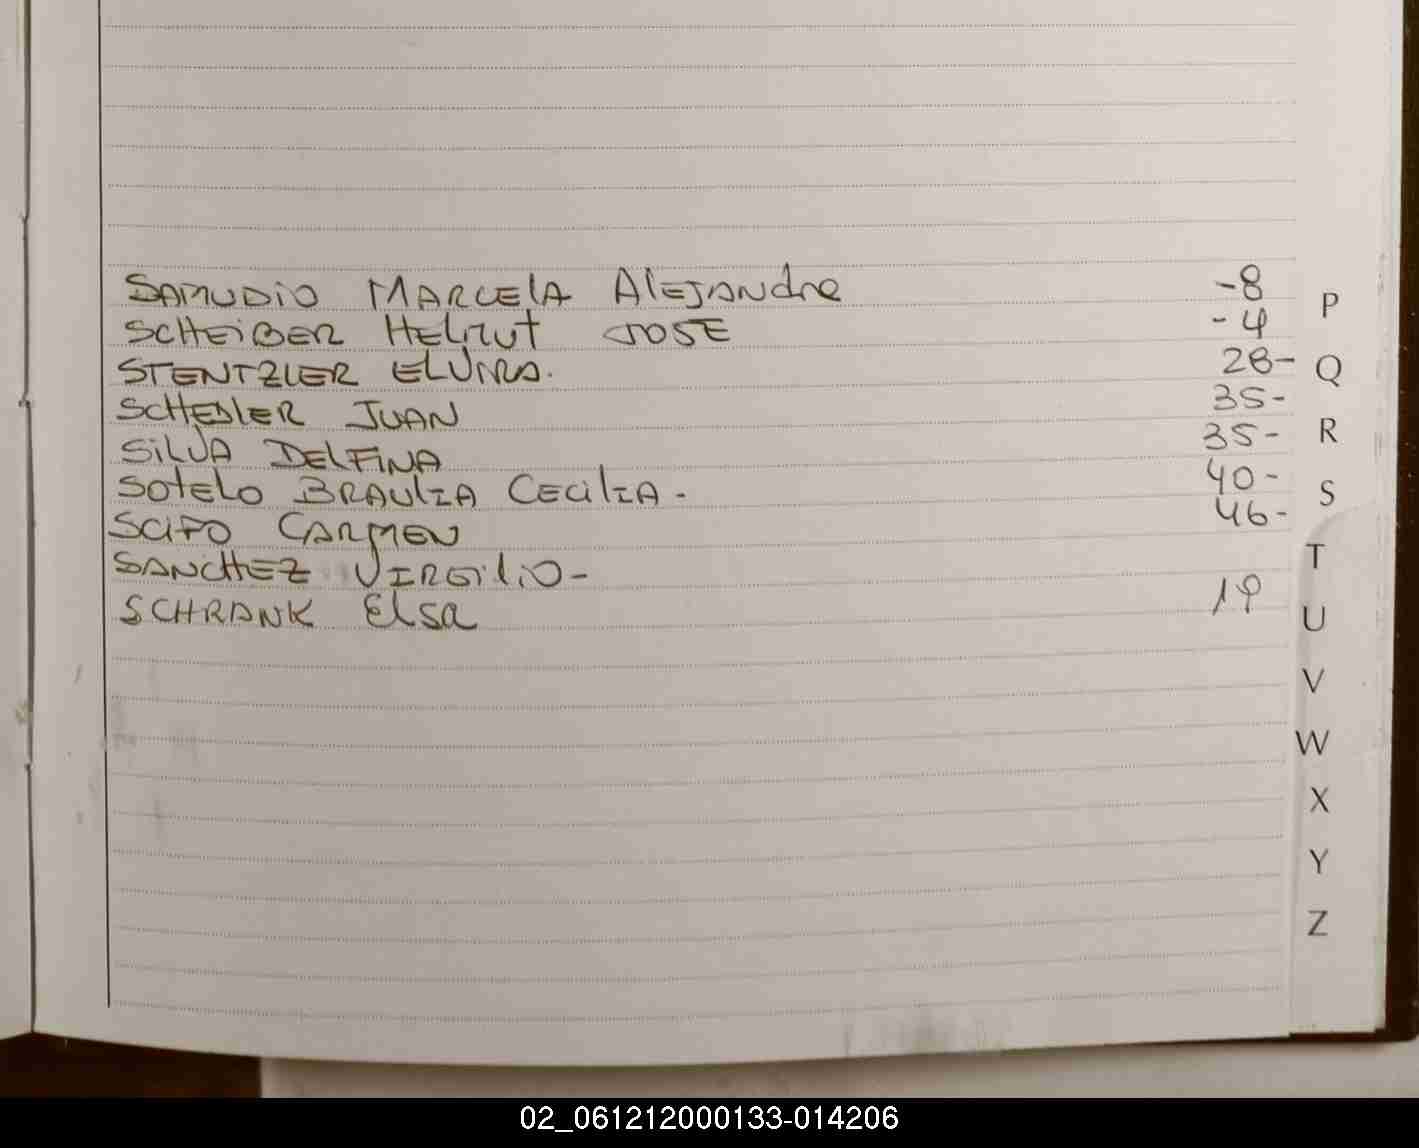 SAMUDIO MARCELA AlEJANdRe -8
SCHEIBER HELMUT JOSE -4
STENTZLER ELVIRA. 28-
SCHEDLER JUAN 35-
SILVA DELFINA 35-
SOTELO BRAULIA CECILIA - 40-
SCIFO CARMEN 46-
SANCHEZ VIRGILIO-
SCHRANK Elsa 19
P
Q
R
S
T
U
V
W
X
Y
Z
02_061212000133-014206